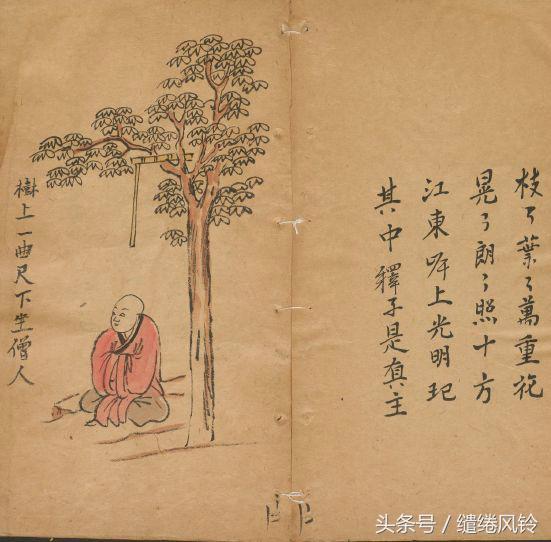 枝々葉々萬重
晃々朗々照十方
江東岸上光明玘
其中釋子是真主
樹上一曲尺下坐僧人
头条号 / 缱绻风铃